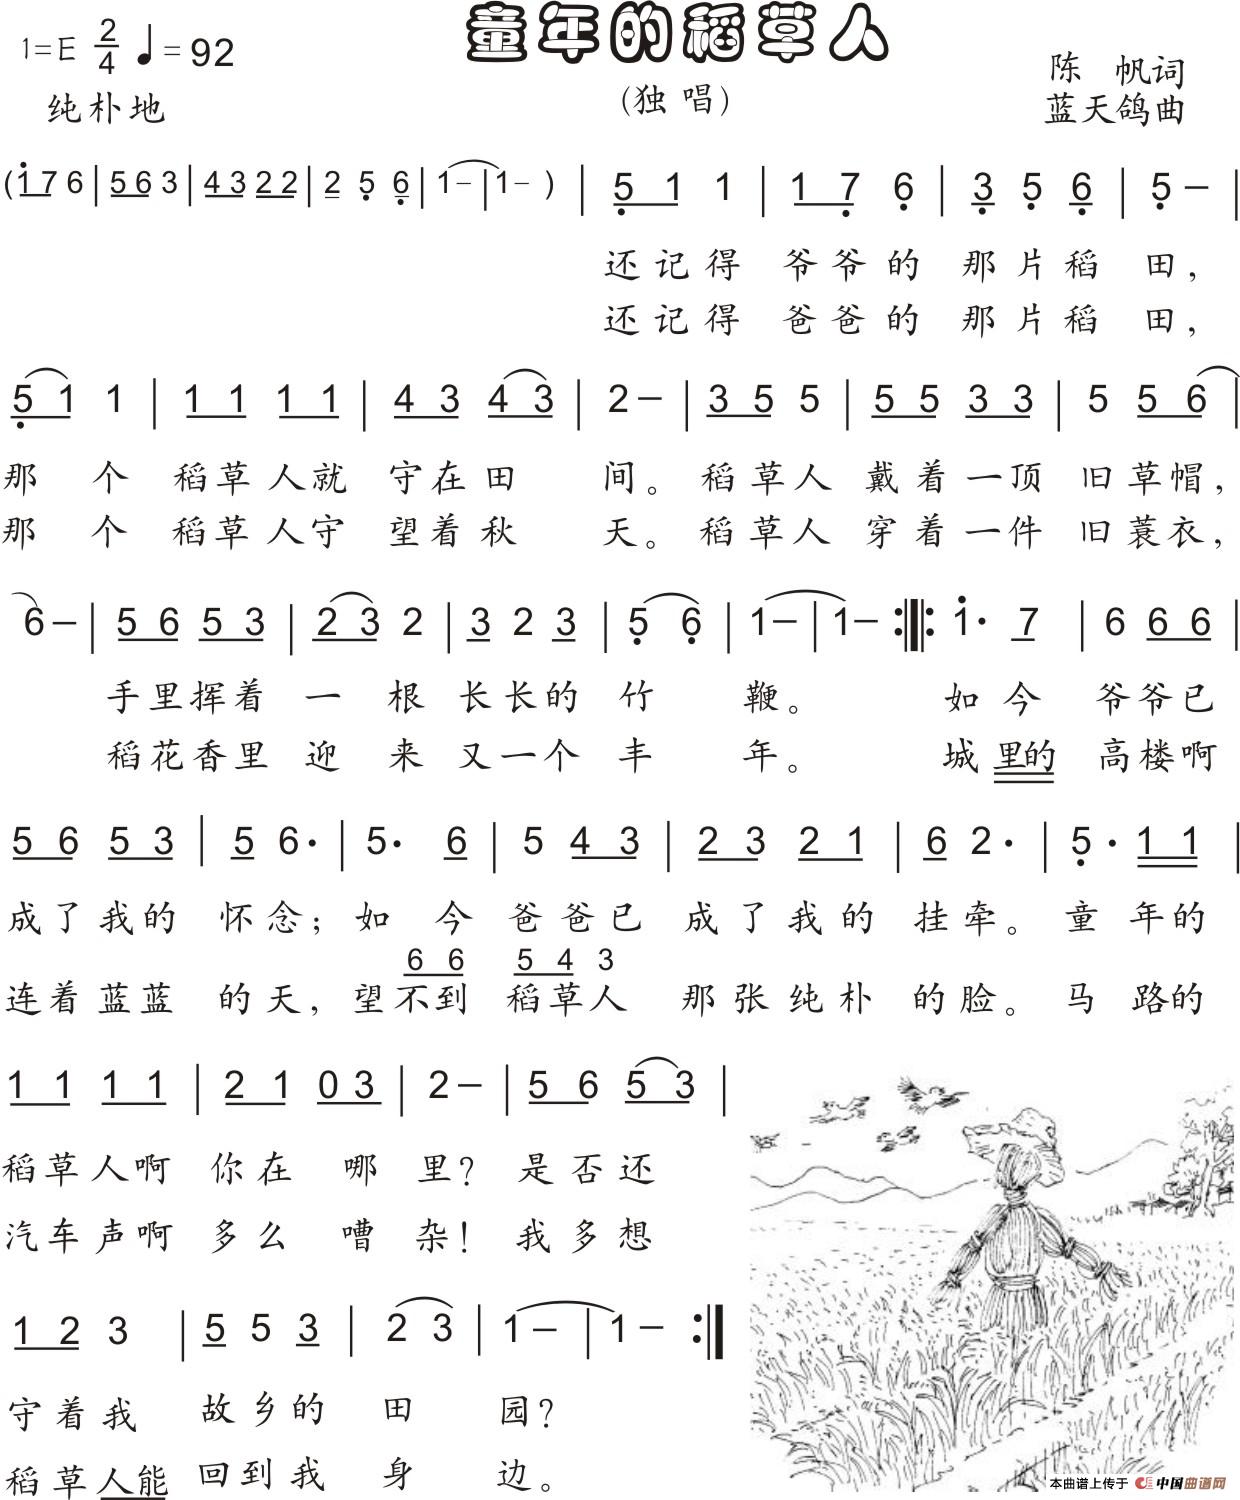 童年的稻草人
1=E 2/4 ♩=92
(独 唱)
陈 帆词
纯朴地
蓝天鸽曲
(1̇7 6 | 56 3 | 43 22 | 2 5̣ 6̣ | 1– | 1– ) | 5̣ 1 1 | 1 7̣ 6̣ | 3̣ 5̣ 6̣ | 5̣ – |
还记得 爷爷的 那片稻 田,
还记得 爸爸的 那片稻 田,
5̣ 1 1 | 1 1 1 1 | 4 3 4 3 | 2 – | 3 5 5 | 5 5 3 3 | 5 5 6 |
那 个 稻草人就 守在田 间。稻草人 戴着一顶 旧草帽,
那 个 稻草人守 望着秋 天。稻草人 穿着一件 旧蓑衣,
6 – | 5 6 5 3 | 2 3 2 | 3 2 3 | 5̣ 6̣ | 1 – | 1 – :‖: 1̇· 7 | 6 6 6 |
手里挥着 一 根 长长的 竹 鞭。 如今 爷爷已
稻花香里 迎 来 又一个 丰 年。 城里的 高楼啊
5 6 5 3 | 5 6· | 5· 6 | 5 4 3 | 2 3 2 1 | 6 2· | 5̣· 1 1 |
成了我的 怀念; 如 今 爸爸已 成了我的 挂牵。童 年的
6 6 5 4 3
连着蓝蓝 的天, 望不到 稻草人 那张纯朴 的脸。马 路的
1 1 1 1 | 2 1 0 3 | 2 – | 5 6 5 3 |
稻草人啊 你在 哪 里? 是否还
汽车声啊 多么 嘈 杂! 我多想
1 2 3 | 5 5 3 | 2 3 | 1 – | 1 – :‖
守着我 故乡的 田 园?
稻草人能 回到我 身 边。
本曲谱上传于 中国曲谱网